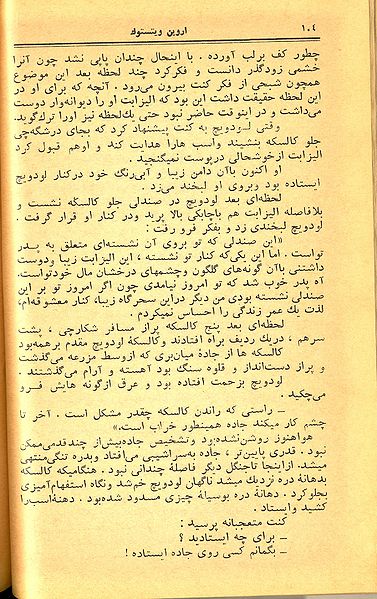 ۱۰۴
اروین ویتستوک
چطور کف برلب آورده . با اینحال چندان پاپی نشد چون آنرا
خشمی زودگذر دانست و فکرکرد چند لحظه بعد این موضوع
همچون شبحی از فکر کنت بیرون می‌رود . آنچه که برای او در
این لحظه حقیقت داشت این بود که الیزابت او را دیوانه‌وار دوست
می‌داشت و در اینوقت حاضر نبود حتی یک‌لحظه نیز اورا ترک‌گوید.
وقتی لودویچ به کنت پیشنهاد کرد که بجای درشگه‌چی
جلو کالسکه بنشیند واسب هارا هدایت کند و اوهم قبول کرد
الیزابت ازخوشحالی درپوست نمیگنجید .
او اکنون باآن دامن زیبا و آبی‌رنگ خود درکنار لودویچ
ایستاده بود وبروی او لبخند می‌زد .
لحظه‌ای بعد لودویچ در صندلی جلو کالسکه نشست و
بلافاصله الیزابت هم باچابکی بالا پرید ودر کنار او قرار گرفت .
لودویچ لبخندی زد و بفکر فرو رفت :
«این صندلی که تو بروی آن نشسته‌ای متعلق به پدر
تواست . اما این یکی‌که کنار تو نشسته ، این الیزابت زیبا ودوست
داشتنی باآن گونه‌های گلگون وچشمهای درخشان مال خودتواست.
آه پدر خوب شد که تو امروز نیامدی چون اگر امروز تو بر این
صندلی نشسته بودی من دیگر دراین سحرگاه زیبا، کنار معشوقه‌ام،
لذت یک عمر زندگی را احساس نمیکردم .
لحظه‌ای بعد پنج کالسکه پراز مسافر شکارچی ، پشت
سرهم ، دریک ردیف براه افتادند وکالسکهٔ لودویچ مقدم برهمه‌بود
کالسکه ها از جادهٔ میان‌بری که ازوسط مزرعه می‌گذشت
و پراز دست‌انداز و قلوه سنگ بود آهسته و آرام می‌گذشتند .
لودویچ بزحمت افتاده بود و عرق ازگونه هایش فرو
می‌چکید .
ــ راستی که راندن کالسکه چقدر مشکل است . آخر تا
چشم کار میکند جاده همینطور خراب است.»
هواهنوز روشن‌نشده‌بود وتشخیص جاده‌بیش‌از چندقدمی‌ممکن
نبود . قدری پایین‌تر ، جاده به‌سراشیبی می‌افتاد وبدره تنگی‌منتهی
میشد. ازاینجا تاجنگل دیگر فاصلهٔ چندانی نبود . هنگامیکه کالسکه
بدهانهٔ دره نزدیک میشد ناگهان لودویچ خم‌شد ونگاه استفهام‌آمیزی
بجلوکرد . دهانهٔ دره بوسیلهٔ چیزی مسدود شده‌بود . دهنهٔ‌اسب‌را
کشید وایستاد .
کنت متعجبانه پرسید :
ــ برای چه ایستادید ؟
ــ بگمانم کسی روی جاده ایستاده !